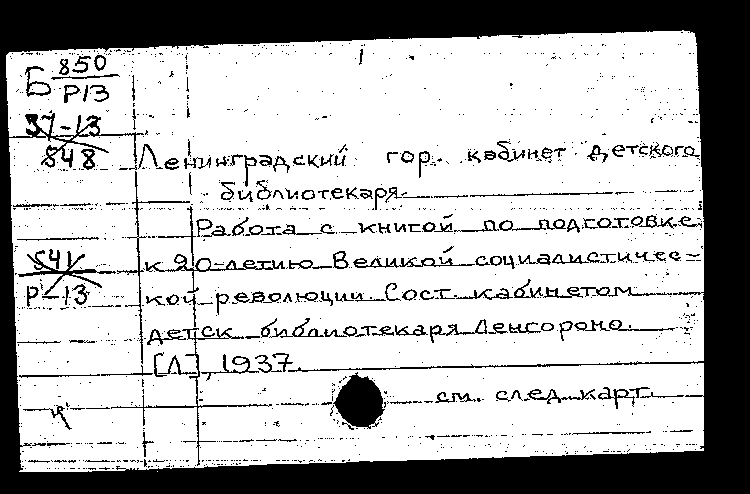 Б 850
Р13
37-13
848
Ленинградский гор. кабинет детского
библиотекаря.
Работа с книгой по подготовке
к 20-летию Великой социалистичес-
кой революции. Сост. кабинетом
детск. библиотекаря Ленгороно.
[Л], 1937.
см. след. карт.
841
Р-13